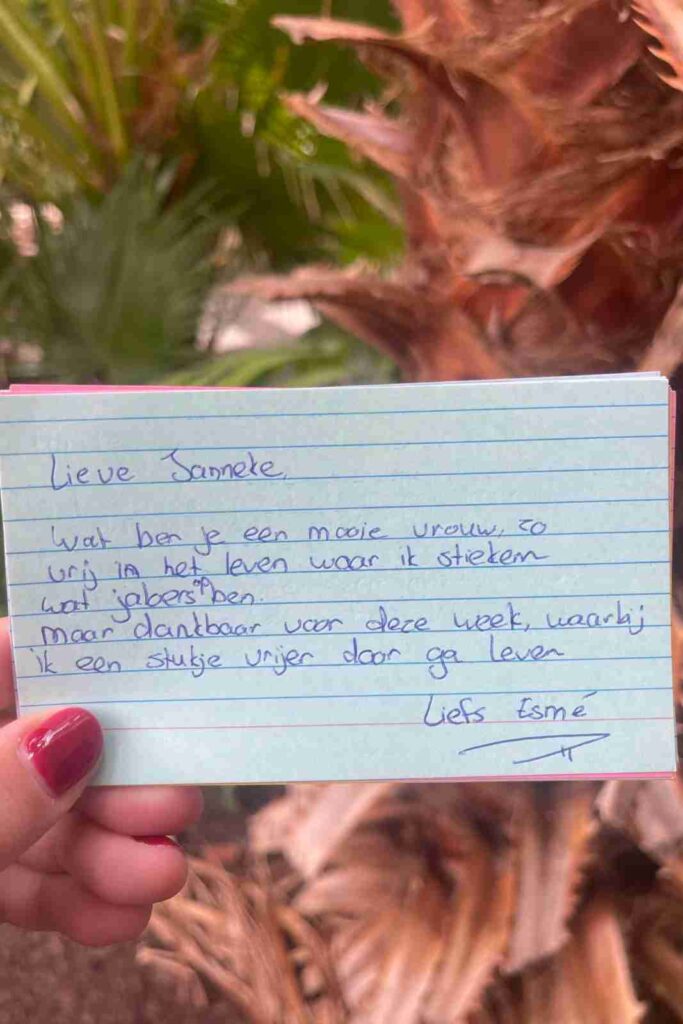 Lieve Janneke,
Wat ben je een mooie vrouw, zo
vrij in het leven waar ik stiekem
wat jabers op ben.
maar dankbaar voor deze week, waarbij
ik een stukje vrijer door ga leven
Liefs Esmé